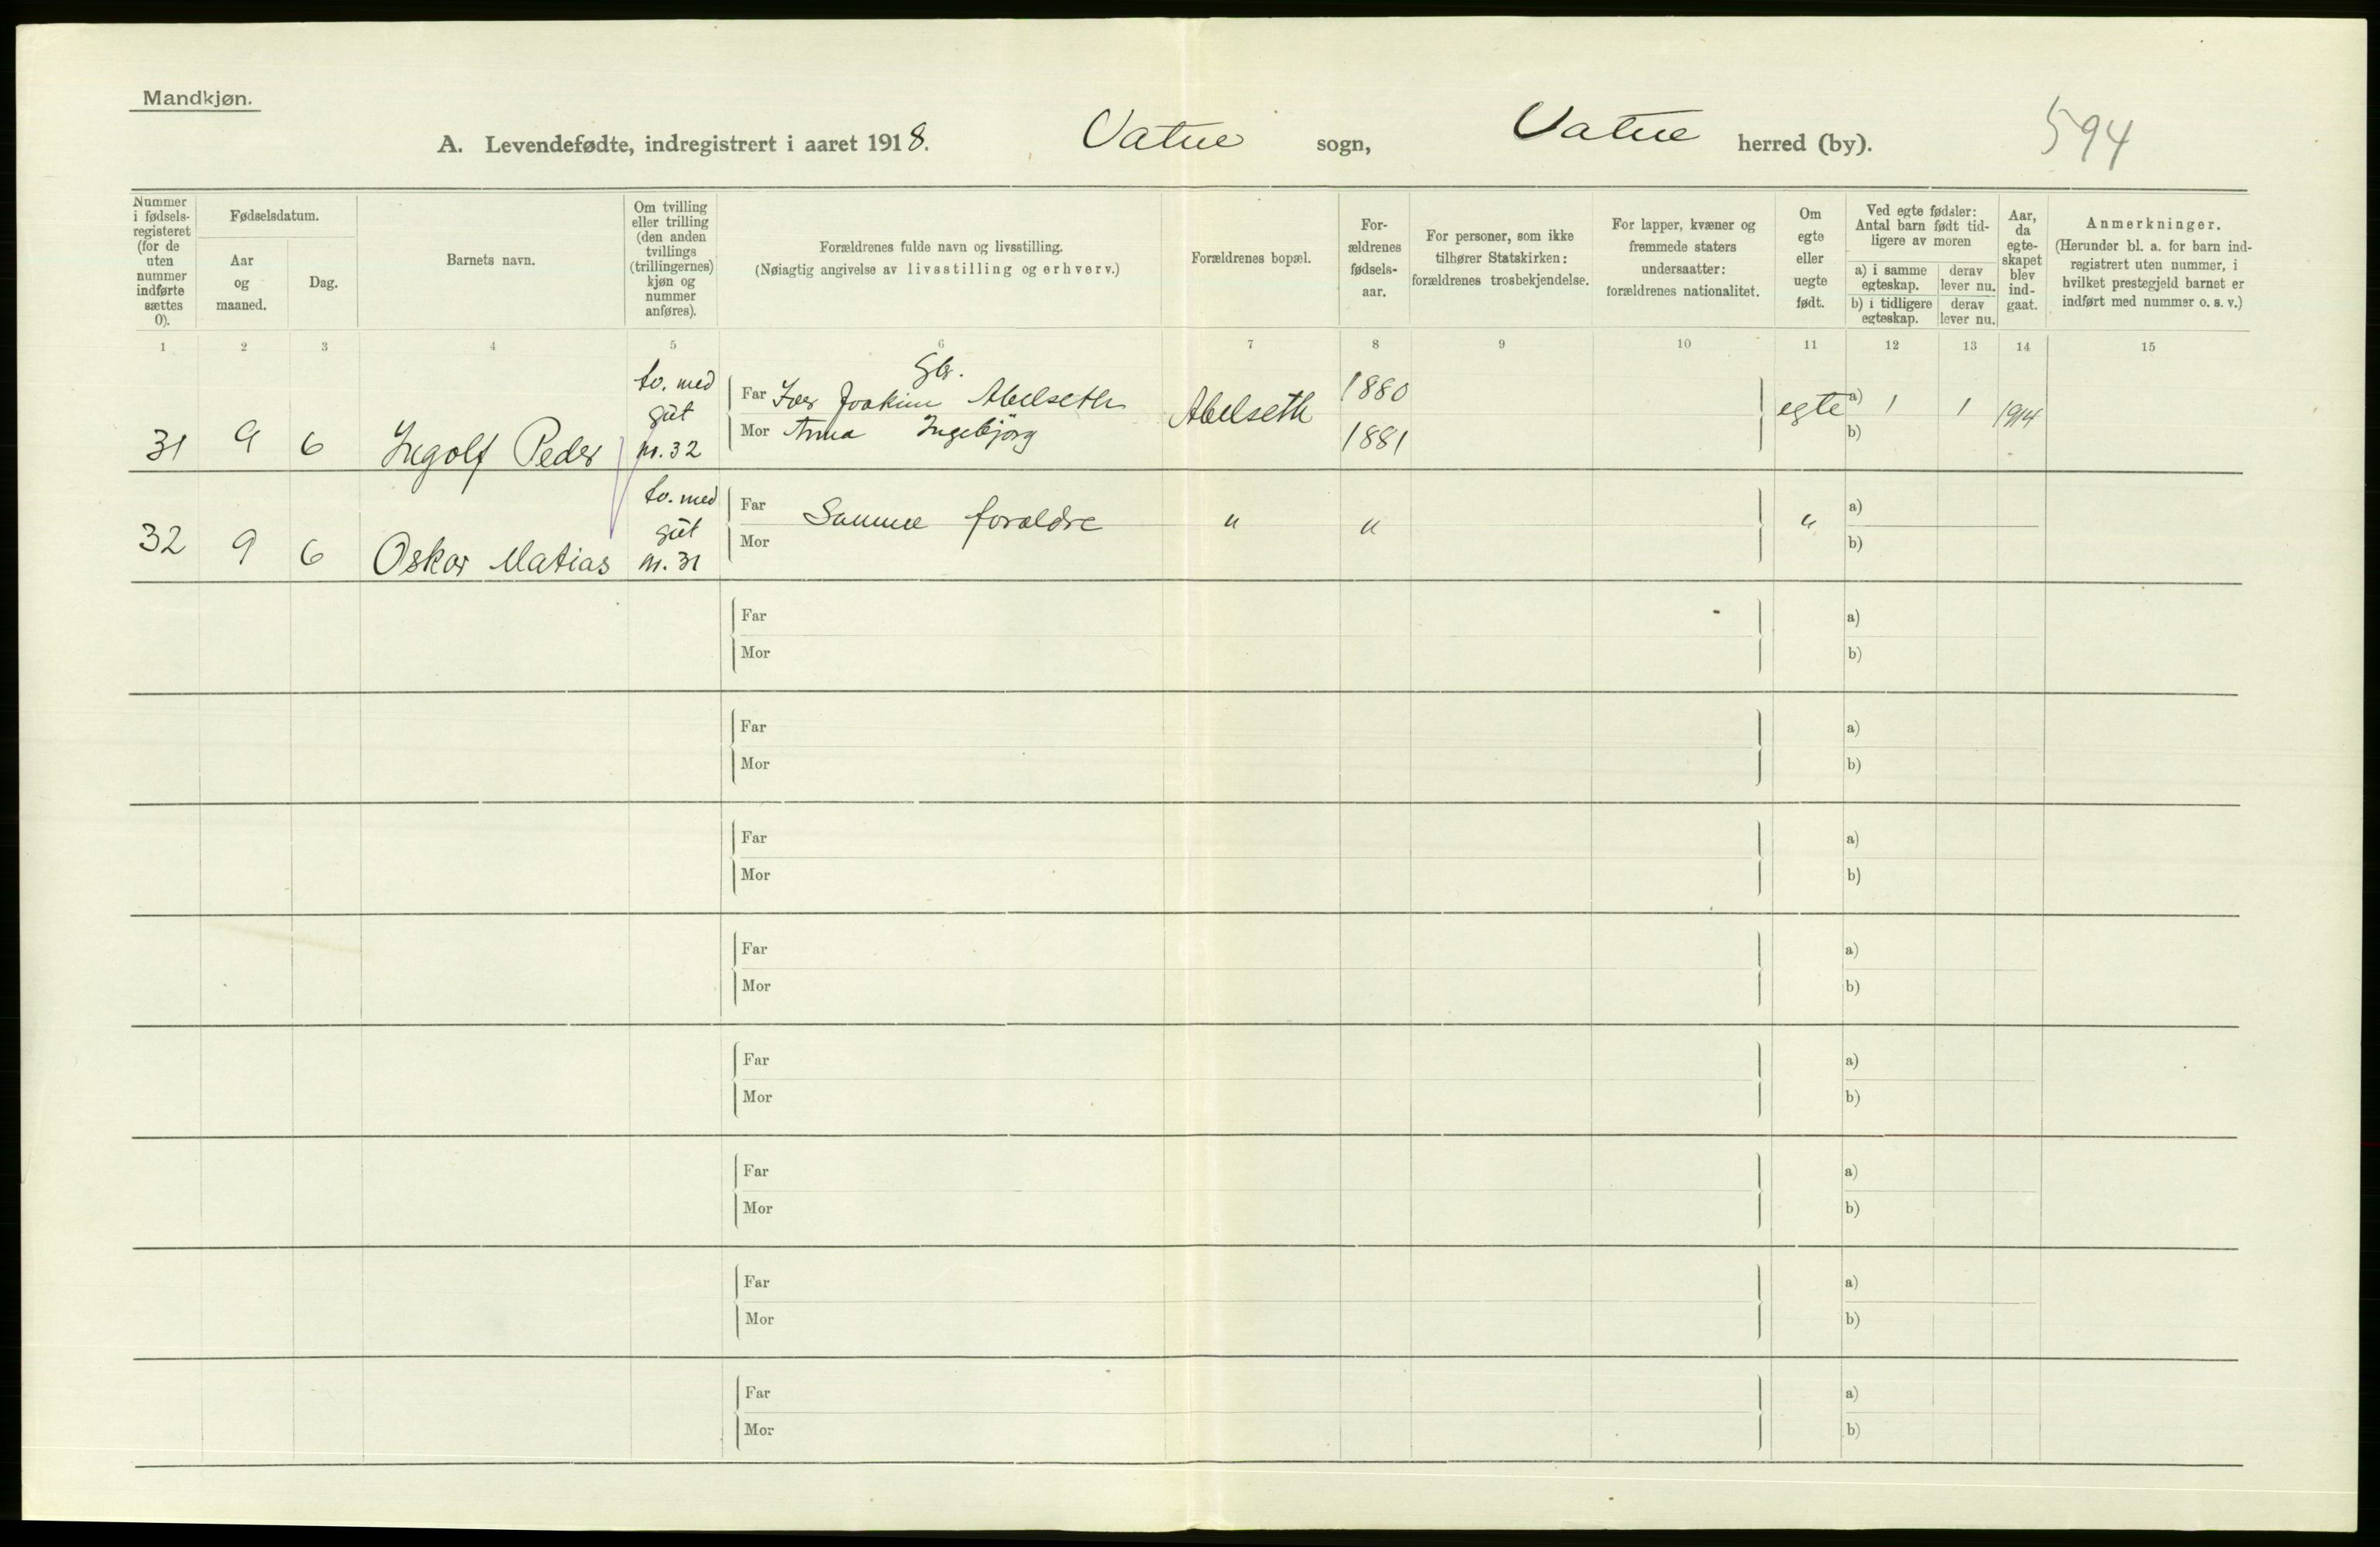 Mandkjøn.
A. Levendefødte, indregistrert i aaret 1918. Vatne sogn, Vatne herred (by). 594
Nummer i fødsels-registeret (for de uten nummer indførte sættes 0).
Fødselsdatum.
Aar og maaned.
Dag.
Barnets navn.
Om tvilling eller trilling (den anden tvillings (trillingernes) kjøn og nummer anføres).
Forældrenes fulde navn og livsstilling.
(Nøiagtig angivelse av livsstilling og erhverv.)
Forældrenes bopæl.
For-ældrenes fødsels-aar.
For personer, som ikke tilhører Statskirken: forældrenes trosbekjendelse.
For lapper, kvæner og fremmede staters undersaatter: forældrenes nationalitet.
Om egte eller uegte født.
Ved egte fødsler: Antal barn født tid-ligere av moren
a) i samme egteskap.
derav lever nu.
b) i tidligere egteskap.
derav lever nu.
Aar, da egte-skapet blev ind-gaat.
Anmerkninger.
(Herunder bl. a. for barn ind-registrert uten nummer, i hvilket prestegjeld barnet er indført med nummer o. s. v.)
1 2 3 4 5 6 7 8 9 10 11 12 13 14 15
31 9 6 Ingolf Peder
tv. med gut nr. 32
Gbr.
Far Iver Joakim Abelseth
Mor Anna Ingebjørg
Abelseth
1880
1881
egte
a) 1 1 1914
b)
32 9 6 Oskar Matias
tv. med gut nr. 31
Far Samme foræ​ldre
Mor
" " "
a)
b)
Far a)
Mor b)
Far a)
Mor b)
Far a)
Mor b)
Far a)
Mor b)
Far a)
Mor b)
Far a)
Mor b)
Far a)
Mor b)
Far a)
Mor b)